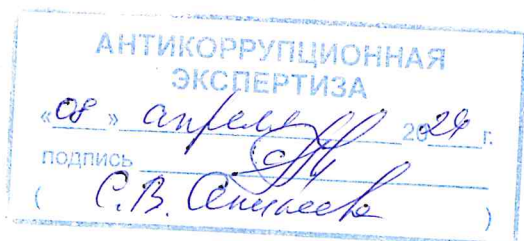 АНТИКОРРУПЦИОННАЯ
ЭКСПЕРТИЗА
«08» апреля 2024 г.
подпись
( С.В. )